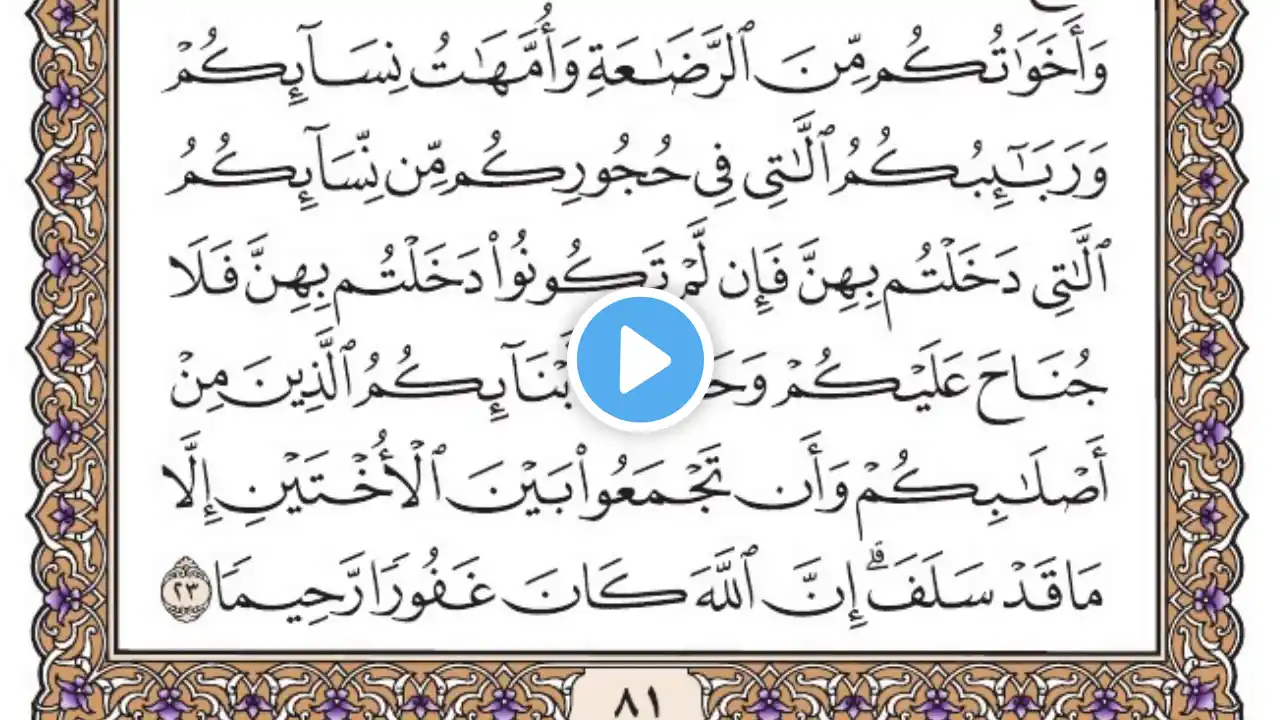 وَأَخَوَٰتُكُم مِّنَ ٱلرَّضَٰعَةِ وَأُمَّهَٰتُ نِسَآئِكُمْ
وَرَبَٰٓئِبُكُمُ ٱلَّٰتِى فِى حُجُورِكُم مِّن نِّسَآئِكُمُ
ٱلَّٰتِى دَخَلْتُم بِهِنَّ فَإِن لَّمْ تَكُونُوا۟ دَخَلْتُم بِهِنَّ فَلَا
جُنَاحَ عَلَيْكُمْ بْنَآئِكُمُ ٱلَّذِينَ مِنْ
أَصْلَٰبِكُمْ وَأَن تَجْمَعُوا۟ بَيْنَ ٱلْأُخْتَيْنِ إِلَّا
مَا قَدْ سَلَفَ ۗ إِنَّ ٱللَّهَ كَانَ غَفُورًا رَّحِيمًا ٢٣
٨١